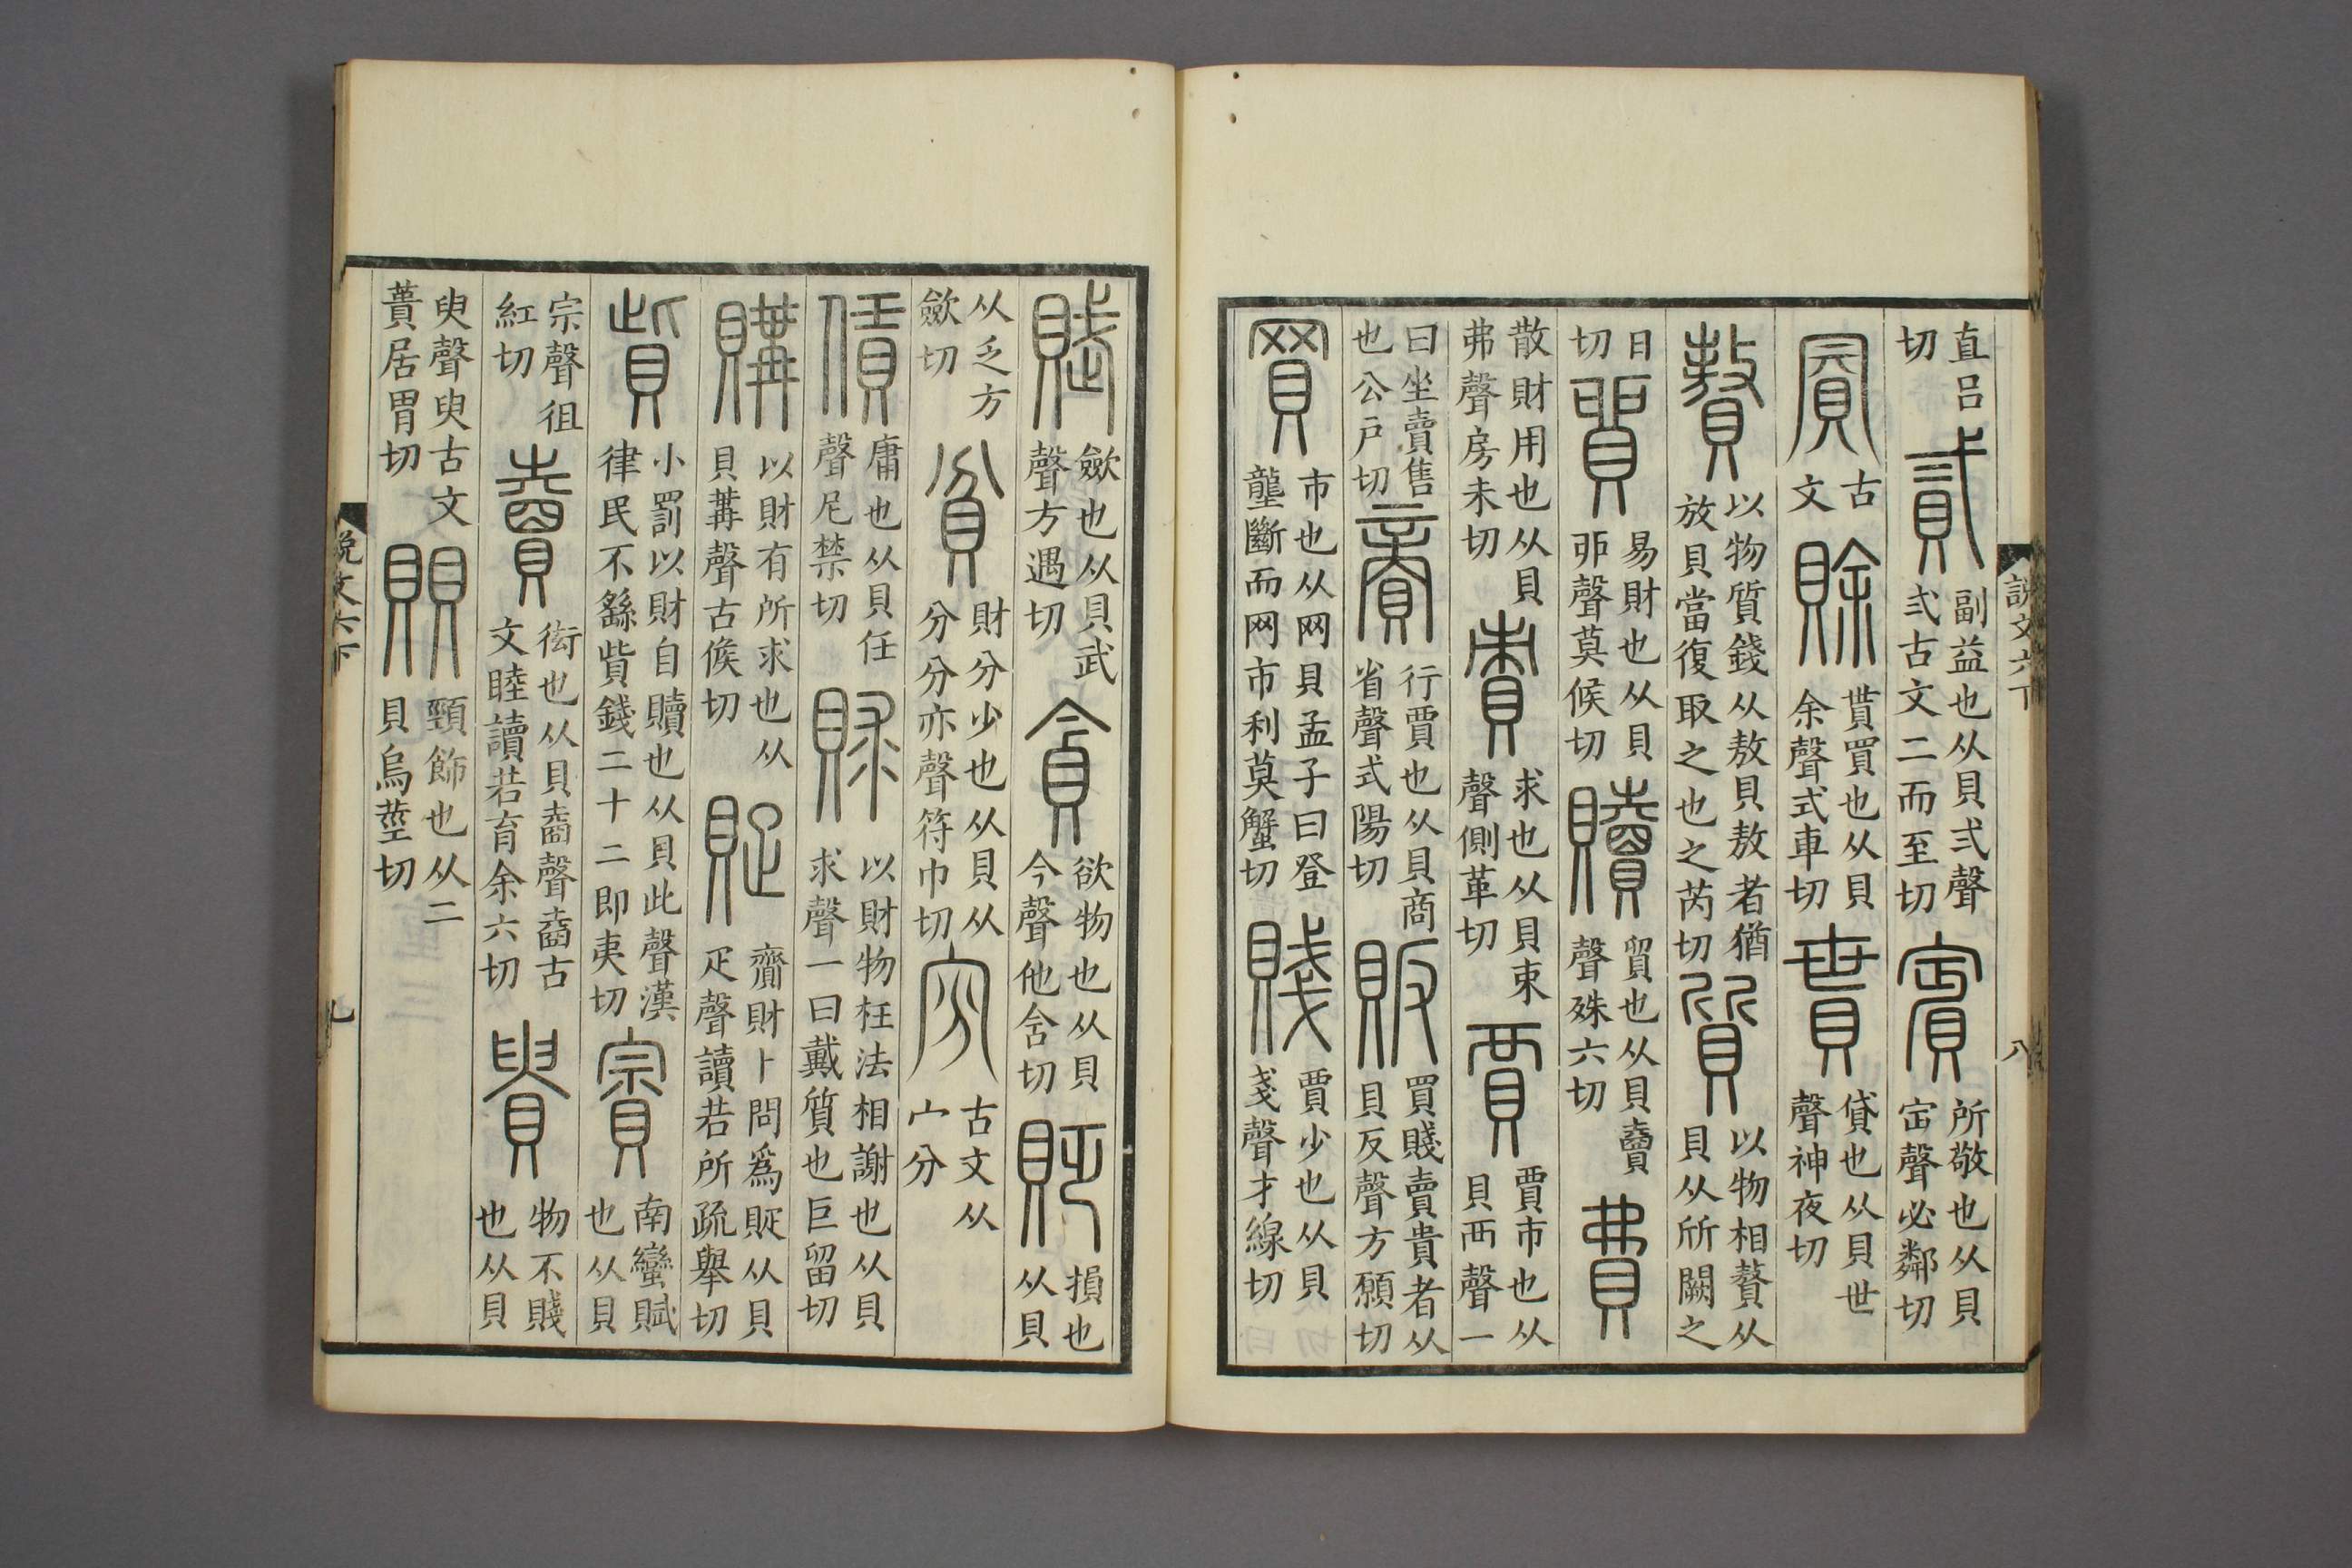 說文六下 八
直呂切 貳 副益也从貝弍聲弍古文二而至切 賓 所敬也从貝㝐聲必鄰切
𡪛 古文 賒 貰買也从貝余聲式車切 貰 貸也从貝世聲神夜切
贅 以物質錢从敖貝敖者猶放貝當復取之也之芮切 質 以物相贅从貝从斦闕之
日切 貿 易財也从貝丣聲莫候切 贖 貿也从貝𧶠聲殊六切 費
散財用也从貝弗聲房未切 責 求也从貝朿聲側革切 賈 賈市也从貝襾聲一
曰坐賣售也公戶切 𧶜 行賈也从貝商省聲式陽切 販 買賤賣貴者从貝反聲方願切
買 市也从网貝孟子曰登壟斷而网市利莫蟹切 賤 賈少也从貝戔聲才線切
賦 斂也从貝武聲方遇切 貪 欲物也从貝今聲他含切 貶 損也从貝
从乏方斂切 貧 財分少也从貝从分分亦聲符巾切 𡧋 古文从宀分
賃 庸也从貝任聲尼禁切 賕 以財物枉法相謝也从貝求聲一曰戴質也巨留切
購 以財有所求也从貝冓聲古候切 貹 齎財卜問爲貹从貝疋聲讀若所疏舉切
貲 小罰以財自贖也从貝此聲漢律民不繇貲錢二十二即夷切 賨 南蠻賦也从貝
宗聲徂紅切 𧶠 衒也从貝𡍬聲𡍬古文睦讀若育余六切 貴 物不賤也从貝
臾聲臾古文蕢居胃切 賏 頸飾也从二貝烏莖切
說文六下 九